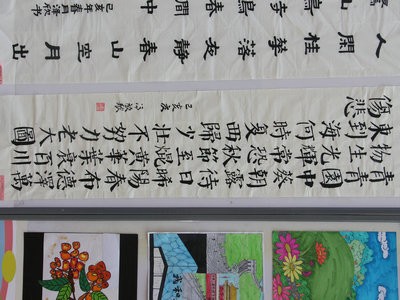 人閒桂華落夜靜春山空月出
青青園中葵朝露待日晞陽春布德澤萬
物生光輝常恐秋節至焜黃華葉衰百川
東到海何時復西歸少壯不努力老大圖
傷悲
己亥
我和